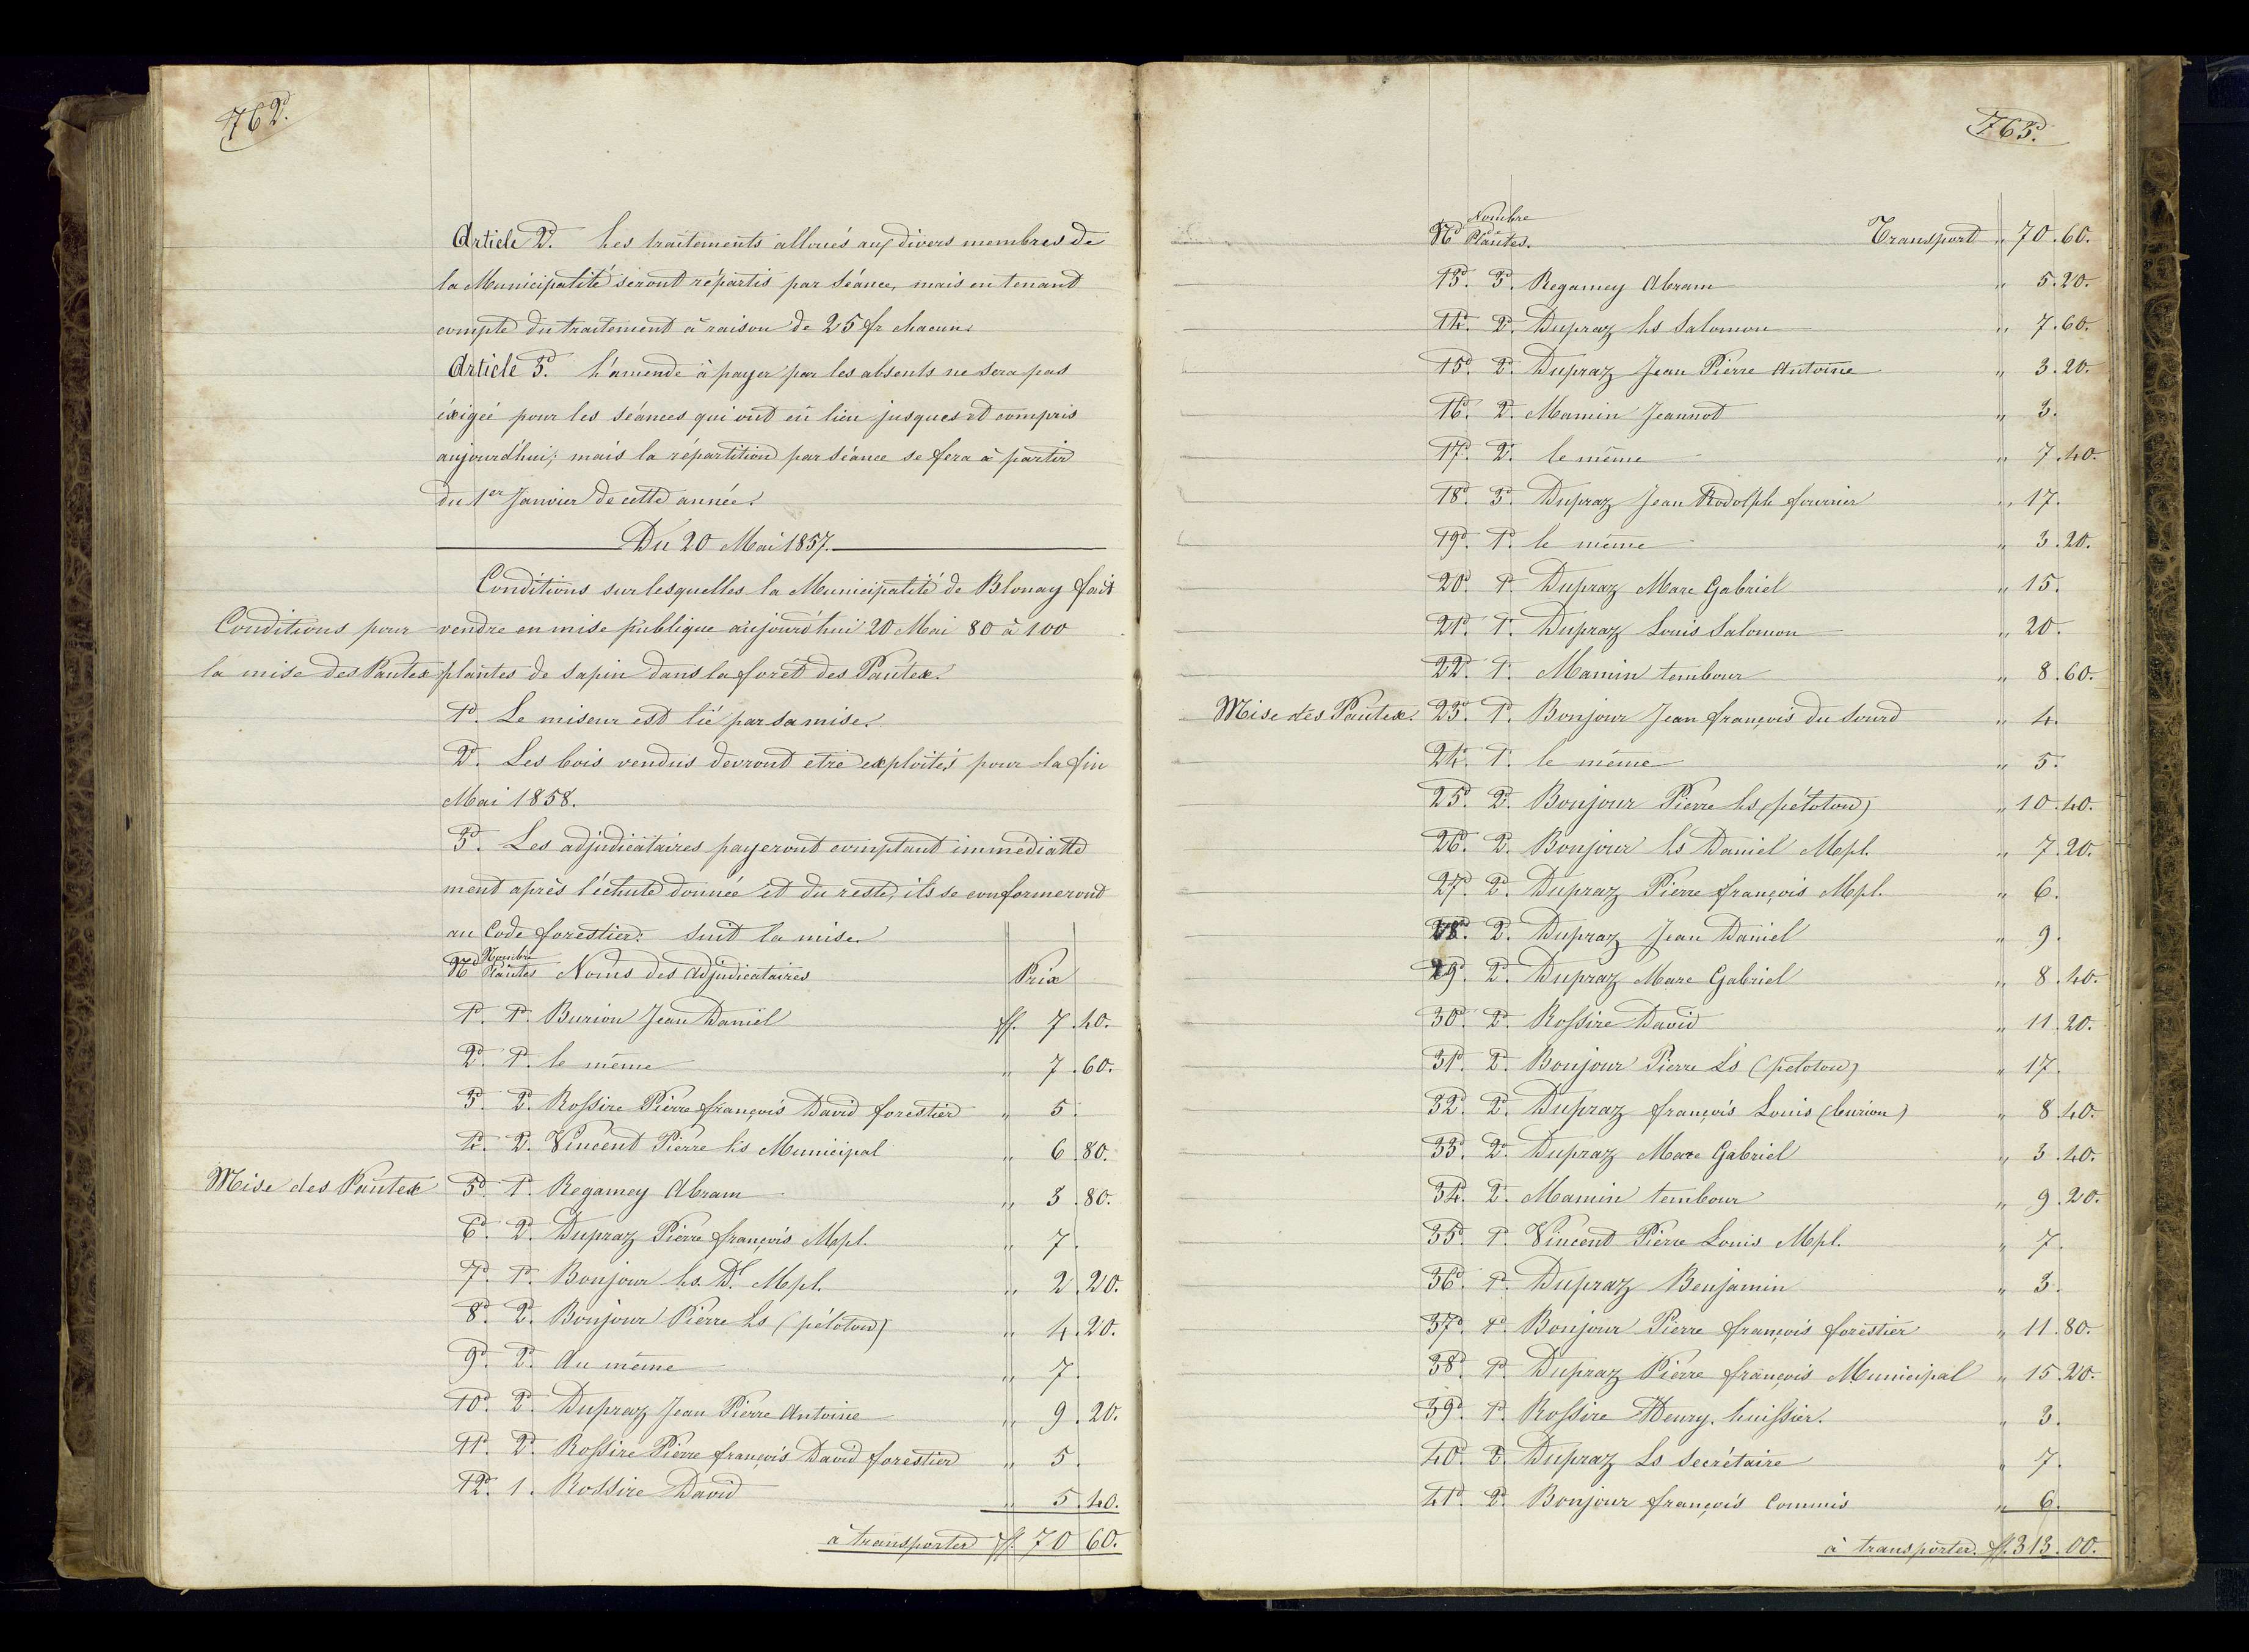 762.
Article 2d. Les traitements alloués aux divers membres de
la Municipalité seront répartis par séance, mais en tenant
compte du traitement à raison de 25 fr chacun.
Article 3d. L'amende à payer par les absents ne sera pas
éxigée pour les séances qui ont eû lieu jusques et compris
aujourd'hui; mais la répartition par séance se fera à partir
du 1er Janvier de cette année.
Du 20 Mai 1857.
Conditions sur lesquelles la Municipalité de Blonay fait
Conditions pour vendre en mise publique aujourd'hui 20 Mai 80 à 100
la mise des Pautex plantes de sapin dans la forêt des Pautex.
1d. Le miseur est lié par sa mise.
2d. Les bois vendus devront etre exploités pour la fin
Mai 1858.
3d. Les adjudicataires payeront comptant immédiatte
ment après l'échute donnée et du reste, ils se conformeront
au Code forestier: suit la mise.
No Nombre Plantes Noms des Adjudicataires Prix
1d. 1d. Burion Jean Daniel ff. 7.40.
2d. 1d. le même " 7.60.
3d. 2d. Rossire Pierre françois David forestier " 5.
4d. 2d. Vincent Pierre Ls Municipal " 6.80.
Mise des Pautex 5d. 1d. Regamey Abram " 3.80.
6d. 2d. Dupraz Pierre françois Mpl. " 7.
7d. 1d. Bonjour Ls. Dl. Mpl. " 2.20.
8d. 2d. Bonjour Pierre Ls (péloton) " 4.20.
9d. 2d. Au même " 7.
10d. 2d. Dupraz Jean Pierre Antoine " 9.20.
11d. 2d. Rossire Pierre françois David forestier " 5.
12d. 1. Rossire David " 5.40.
à transporter ff. 70 60.
763.
No Nombre de Plantes. Transport " 70.60.
13d. 3d. Regamey Abram " 5.20.
14d. 2d. Dupraz Ls Salomon " 7.60.
15d. 2d. Dupraz Jean Pierre Antoine " 3.20.
16d. 2d. Mamin Jeannot " 3.
17d. 2d. le même " 7.40.
18d. 3d. Dupraz Jean Rodolph fourrier " 17.
19d. 1d. le même " 3.20.
20d. 1d. Dupraz Marc Gabriel " 15.
21d. 1d. Dupraz Louis Salomon " 20.
22d. 1d. Mamin tembour " 8.60.
Mise des Pautex. 23d. 1d. Bonjour Jean françois du sourd " 4.
24d. 1d. le même " 5.
25d. 2d. Bonjour Pierre Ls (péloton) " 10.40.
26d. 2d. Bonjour Ls Daniel Mpl. " 7.20.
27d. 2d. Dupraz Pierre françois Mpl. " 6.
28d. 2d. Dupraz Jean Daniel " 9.
29d. 2d. Dupraz Marc Gabriel " 8.40.
30d. 2d. Rossire David " 11.20.
31d. 2d. Bonjour Pierre Ls (peloton) " 17.
32d. 2d. Dupraz françois Louis (burion) " 8.40.
33d. 2d. Dupraz Marc Gabriel " 3.40.
34d. 2d. Mamin tembour " 9.20.
35d. 1d. Vincent Pierre Louis Mpl. " 7.
36d. 1d. Dupraz Benjamin " 3.
37d. 1d. Bonjour Pierre françois forestier " 11.80.
38d. 1d. Dupraz Pierre françois Municipal " 15.20.
39d. 1d. Rossire Henry. huissier. " 3.
40d. 2d. Dupraz Ls Secrétaire " 7.
41d. 2d. Bonjour françois Commis " 6.
à transporter. ff. 313.00.